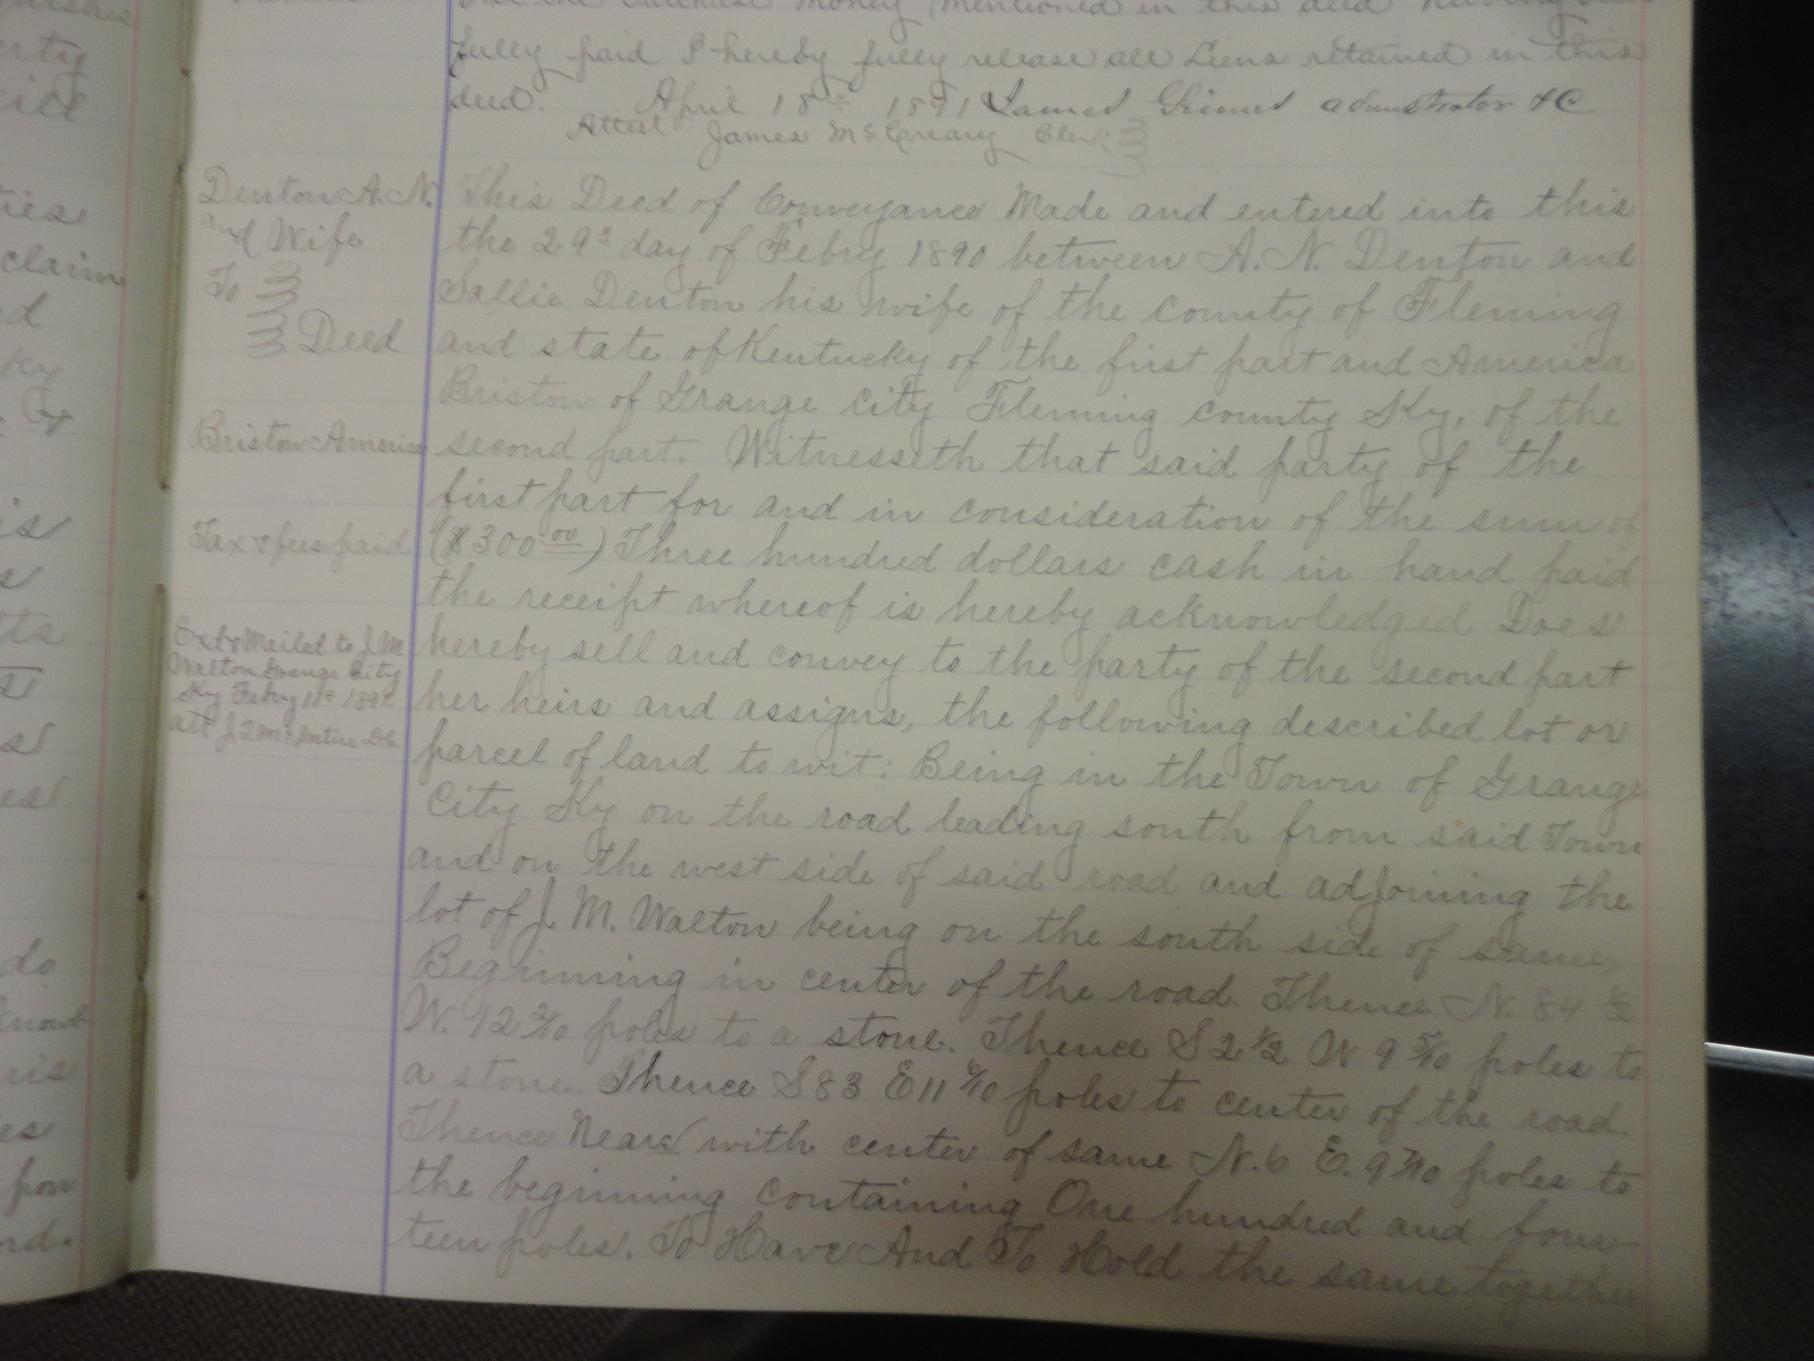 the purchase money mentioned in this deed having been
fully paid I hereby fully release all Liens retained in this
deed. April 18th 1891 James Grimes admnstrator &C
Attest James McCreary Clerk
Denton A. N.
and Wife
To
Deed
Bristow America
Tax & fees paid
Exd & Mailed to J. M.
Walton Grange City
Ky Febry 11th 189
att J. T. McIntire D.C.
This Deed of Conveyance Made and entered into this
the 29th day of Febry 1890 between A. N. Denton and
Sallie Denton his wife of the county of Fleming
and state of Kentucky of the first part and America
Bristow of Grange City Fleming county Ky, of the
second part. Witnesseth that said party of the
first part for and in consideration of the sum of
($300 00) Three hundred dollars cash in hand paid
the receipt whereof is hereby acknowledged Does
hereby sell and convey to the party of the second part
her heirs and assigns, the following described lot or
parcel of land to wit: Being in the Town of Grange
City Ky on the road leading south from said Town
and on the west side of said road and adjoining the
lot of J. M. Walton being on the south side of same,
Beginning in center of the road. Thence N. 84 1/2
W. 12 2/10 poles to a stone. Thence S 2 1/2 W 9 5/10 poles to
a stone. Thence S 83 E 11 6/10 poles to center of the road.
Thence Near with center of same N. 6 E. 9 7/10 poles to
the beginning containing One hundred and four-
teen poles. To Have And To Hold the same together